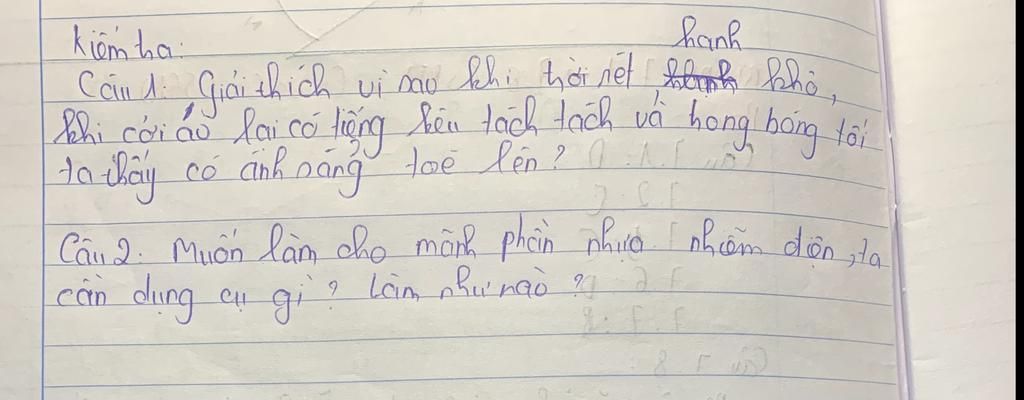 Kiểm tra:
Câu 1: Giải thích vì sao khi trời rét hanh khô,
khi cởi áo lại có tiếng kêu tách tách và trong bóng tối
ta thấy có ánh sáng toé lên?
Câu 2: Muốn làm cho mảnh phần nhựa nhiễm điện, ta
cần dụng cụ gì? Làm như nào?